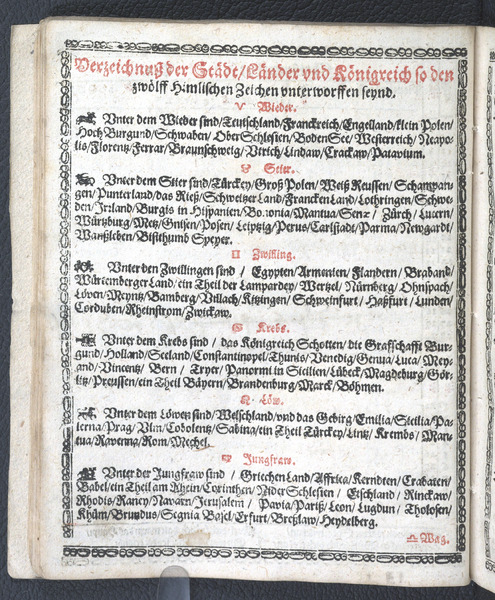 Verzeichnuß der Städt/Länder vnd Königreich so den
zwölff Himlischen Zeichen vnterworffen seynd.
♈ Wieder.
Vnter dem Wieder sind/Teutschland/Franckreich/Engelland/klein Polen/
Hoch Burgund/Schwaben/Ober Schlesien/BodenSee/Westerreich/Neapo-
lis/Florentz/Ferrar/Braunschweig/Vtrich/Lindaw/Crackaw/Patavium.
♉ Stier.
Vnter dem Stier sind/Türckey/Groß Polen/Weiß Reussen/
Punterland/das Rieß/SchweitzerLand/FranckenLand/Lothringen/Schwe-
den/Irrland/Burgis in Hispanien/Bononia/Mantua/Senæ/ Zürch/Lucern/
Würtzburg/Metz/Gnisen/Posen/Leipzig/Perus/Carlstadt/Parma/Newgardt/
Wanßleben/Bisthumb Speyer.
♊ Zwilling.
Vnter den Zwillingen sind / Egypten/Armenien/Flandern/ Braband/
WürtembergerLand/ein Theil der Lampardey/Wertzel/Nürnberg/Ohnspach/
Löven/Meyntz/Bamberg/Villach/Kitzingen/Schweinfurt/ Haßfurt/ Lunden/
Corduben/Rheinstrom/Zwickaw.
♋ Krebs.
Vnter dem Krebs sind / das Königreich Schotten/die Graffschafft Bur-
gund/Holland/Seeland/Constantinopel/Thunis/Venedig/Genua/Luca/Mey-
land/Vincentz/ Bern / Tryer/Panormi in Sicilien/Lübeck/Magdeburg/Gör-
litz/Preussen/ein Theil Bäyern/Brandenburg/Marck/Böhmen.
♌ Löw.
Vnter dem Löwen sind/Welschland/vnd das Gebirg/Emilia/Sicilia/Pa-
lerna/Prag/Vlm/Cobolentz/Sabina/ein Theil Türckey/Lintz/Krembs/ Man-
tua/Ravenna/Rom/Mechel.
♍ Jungfraw.
Vnter der Jungfraw sind / GriechenLand/Affrica/Kerndten/Crabaten/
Babel/ein Theil am Rhein/Corinthen/Nider Schlesien / Etschland / Rinckaw/
Rhodis/Rancy/Navarn/Jerusalem / Pavia/Pariß/Leon/Lugdun/ Tholosen/
Khüm/Brundus/Segnia Basel/Erfurt/Breßlaw/Heydelberg.
♎ Wag.